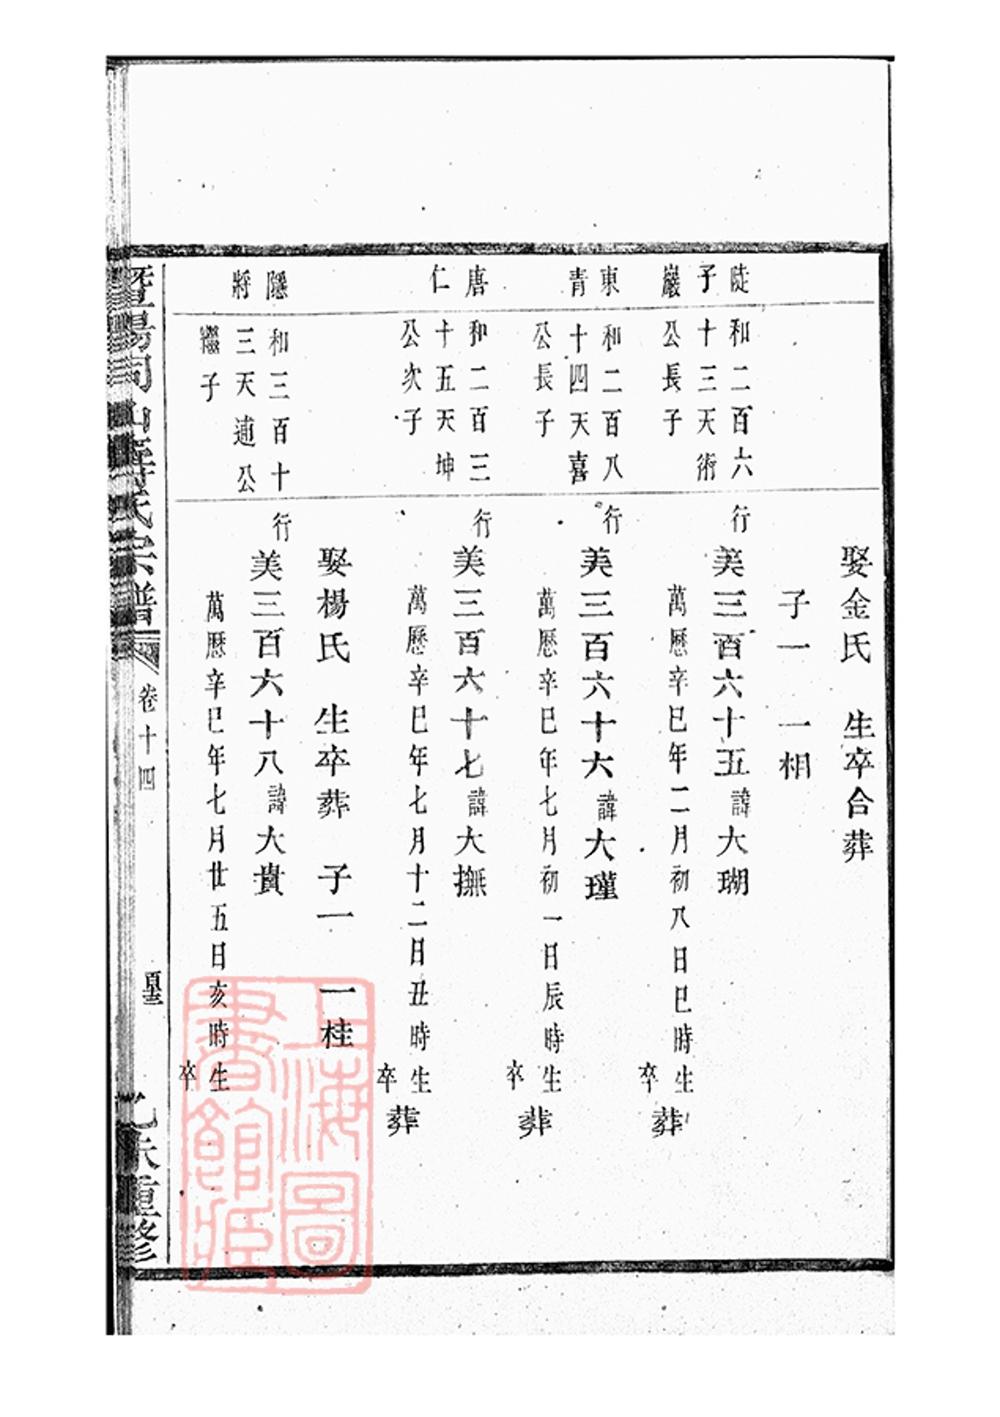 娶金氏　生卒合葬
子一　一相
陡子巖
和二百六
十三天術
公長子
行
美三百六十五諱大瑚
萬曆辛巳年二月初八日巳時生
卒
葬
東青
和二百八
十四天喜
公長子
行
美三百六十六諱大瑾
萬曆辛巳年七月初一日辰時生
卒
葬
唐仁
和二百三
十五天坤
公次子
行
美三百六十七諱大撫
萬曆辛巳年七月十二日丑時生
卒
葬
娶楊氏　生卒葬　子一　一桂
隱將
和三百十
三天逋公
繼子
行
美三百六十八諱大貴
萬曆辛巳年七月廿五日亥時生
卒
暨陽同山壽氏宗譜
卷十四
乙未重修
上海圖
書館藏